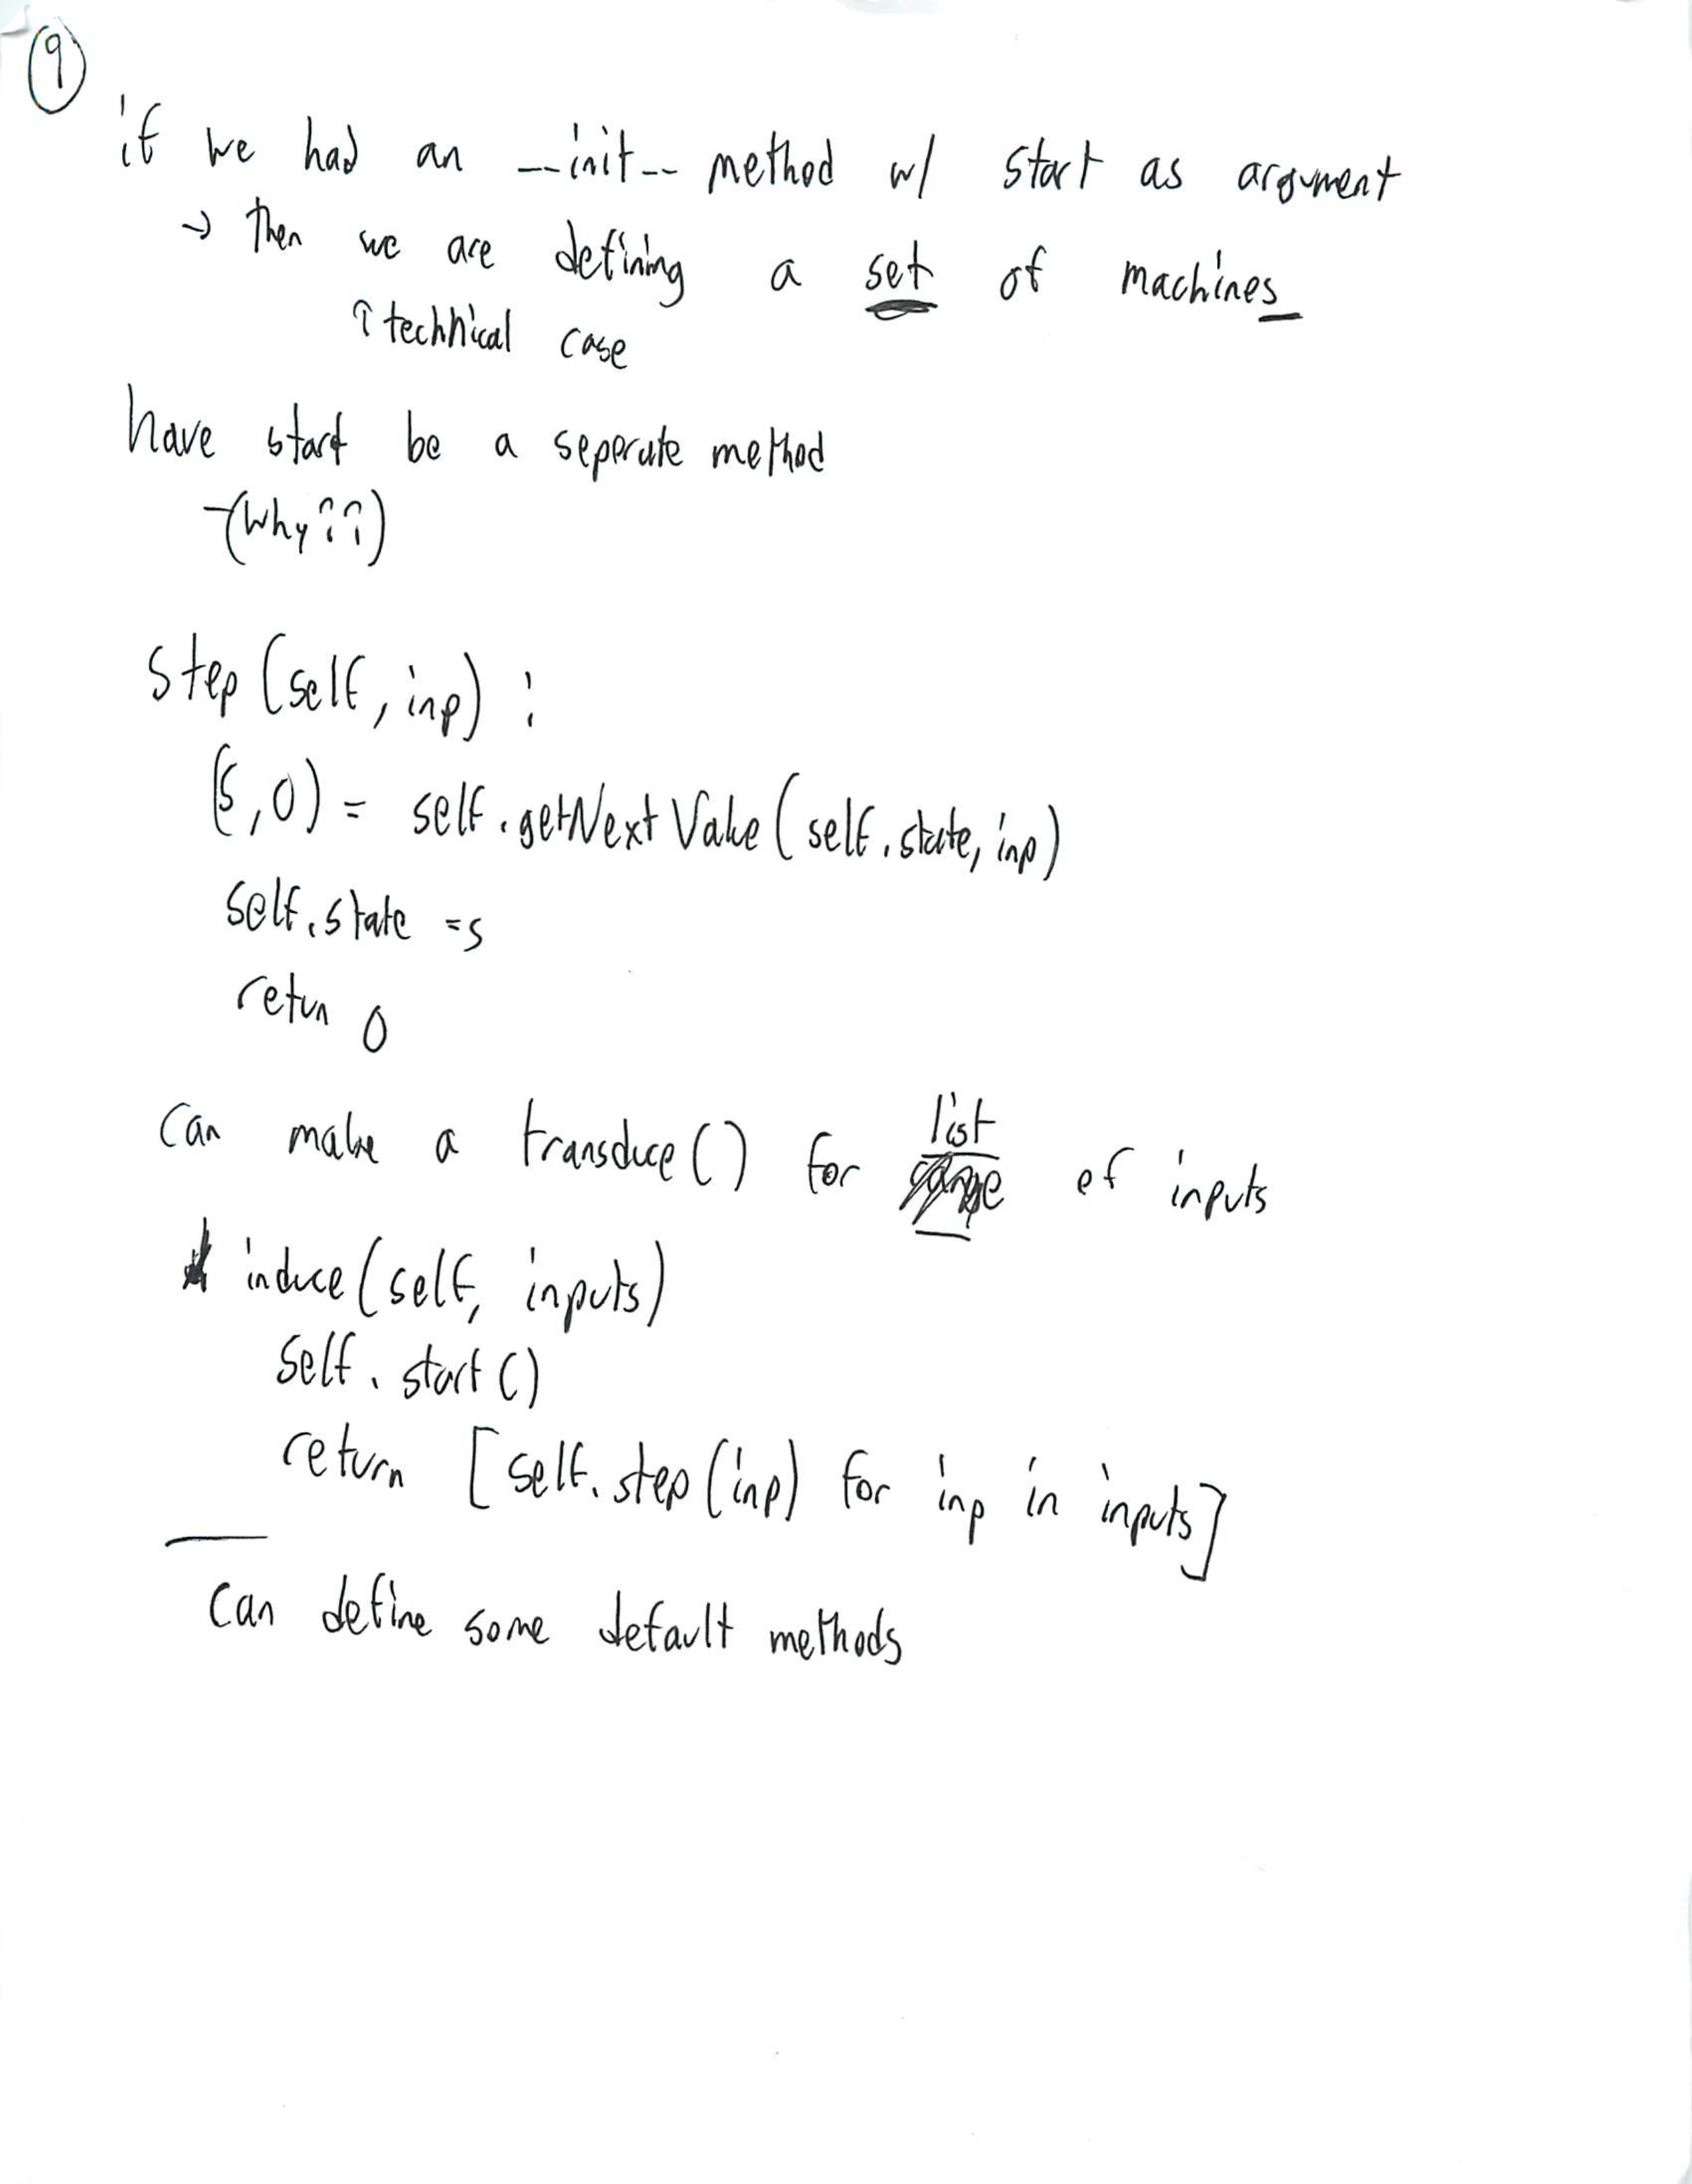 9
if we had an __init__ method w/ start as argument
→ then we are defining a set of machines
↑ technical case
have start be a seperate method
-(why??)
step (self, inp) :
(s, o) = self.getNextValue (self.state, inp)
self.state = s
retun o
Can make a transduce() for list of inputs
induce (self, inputs)
self.start()
return [self.step(inp) for inp in inputs]
Can define some default methods